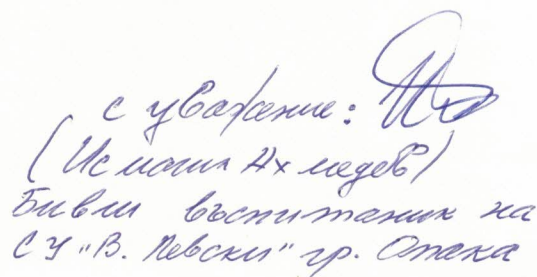 с уважение:
(Исмаил Ахмедов)
бивш възпитаник на
СУ "В. Левски" гр. Опака